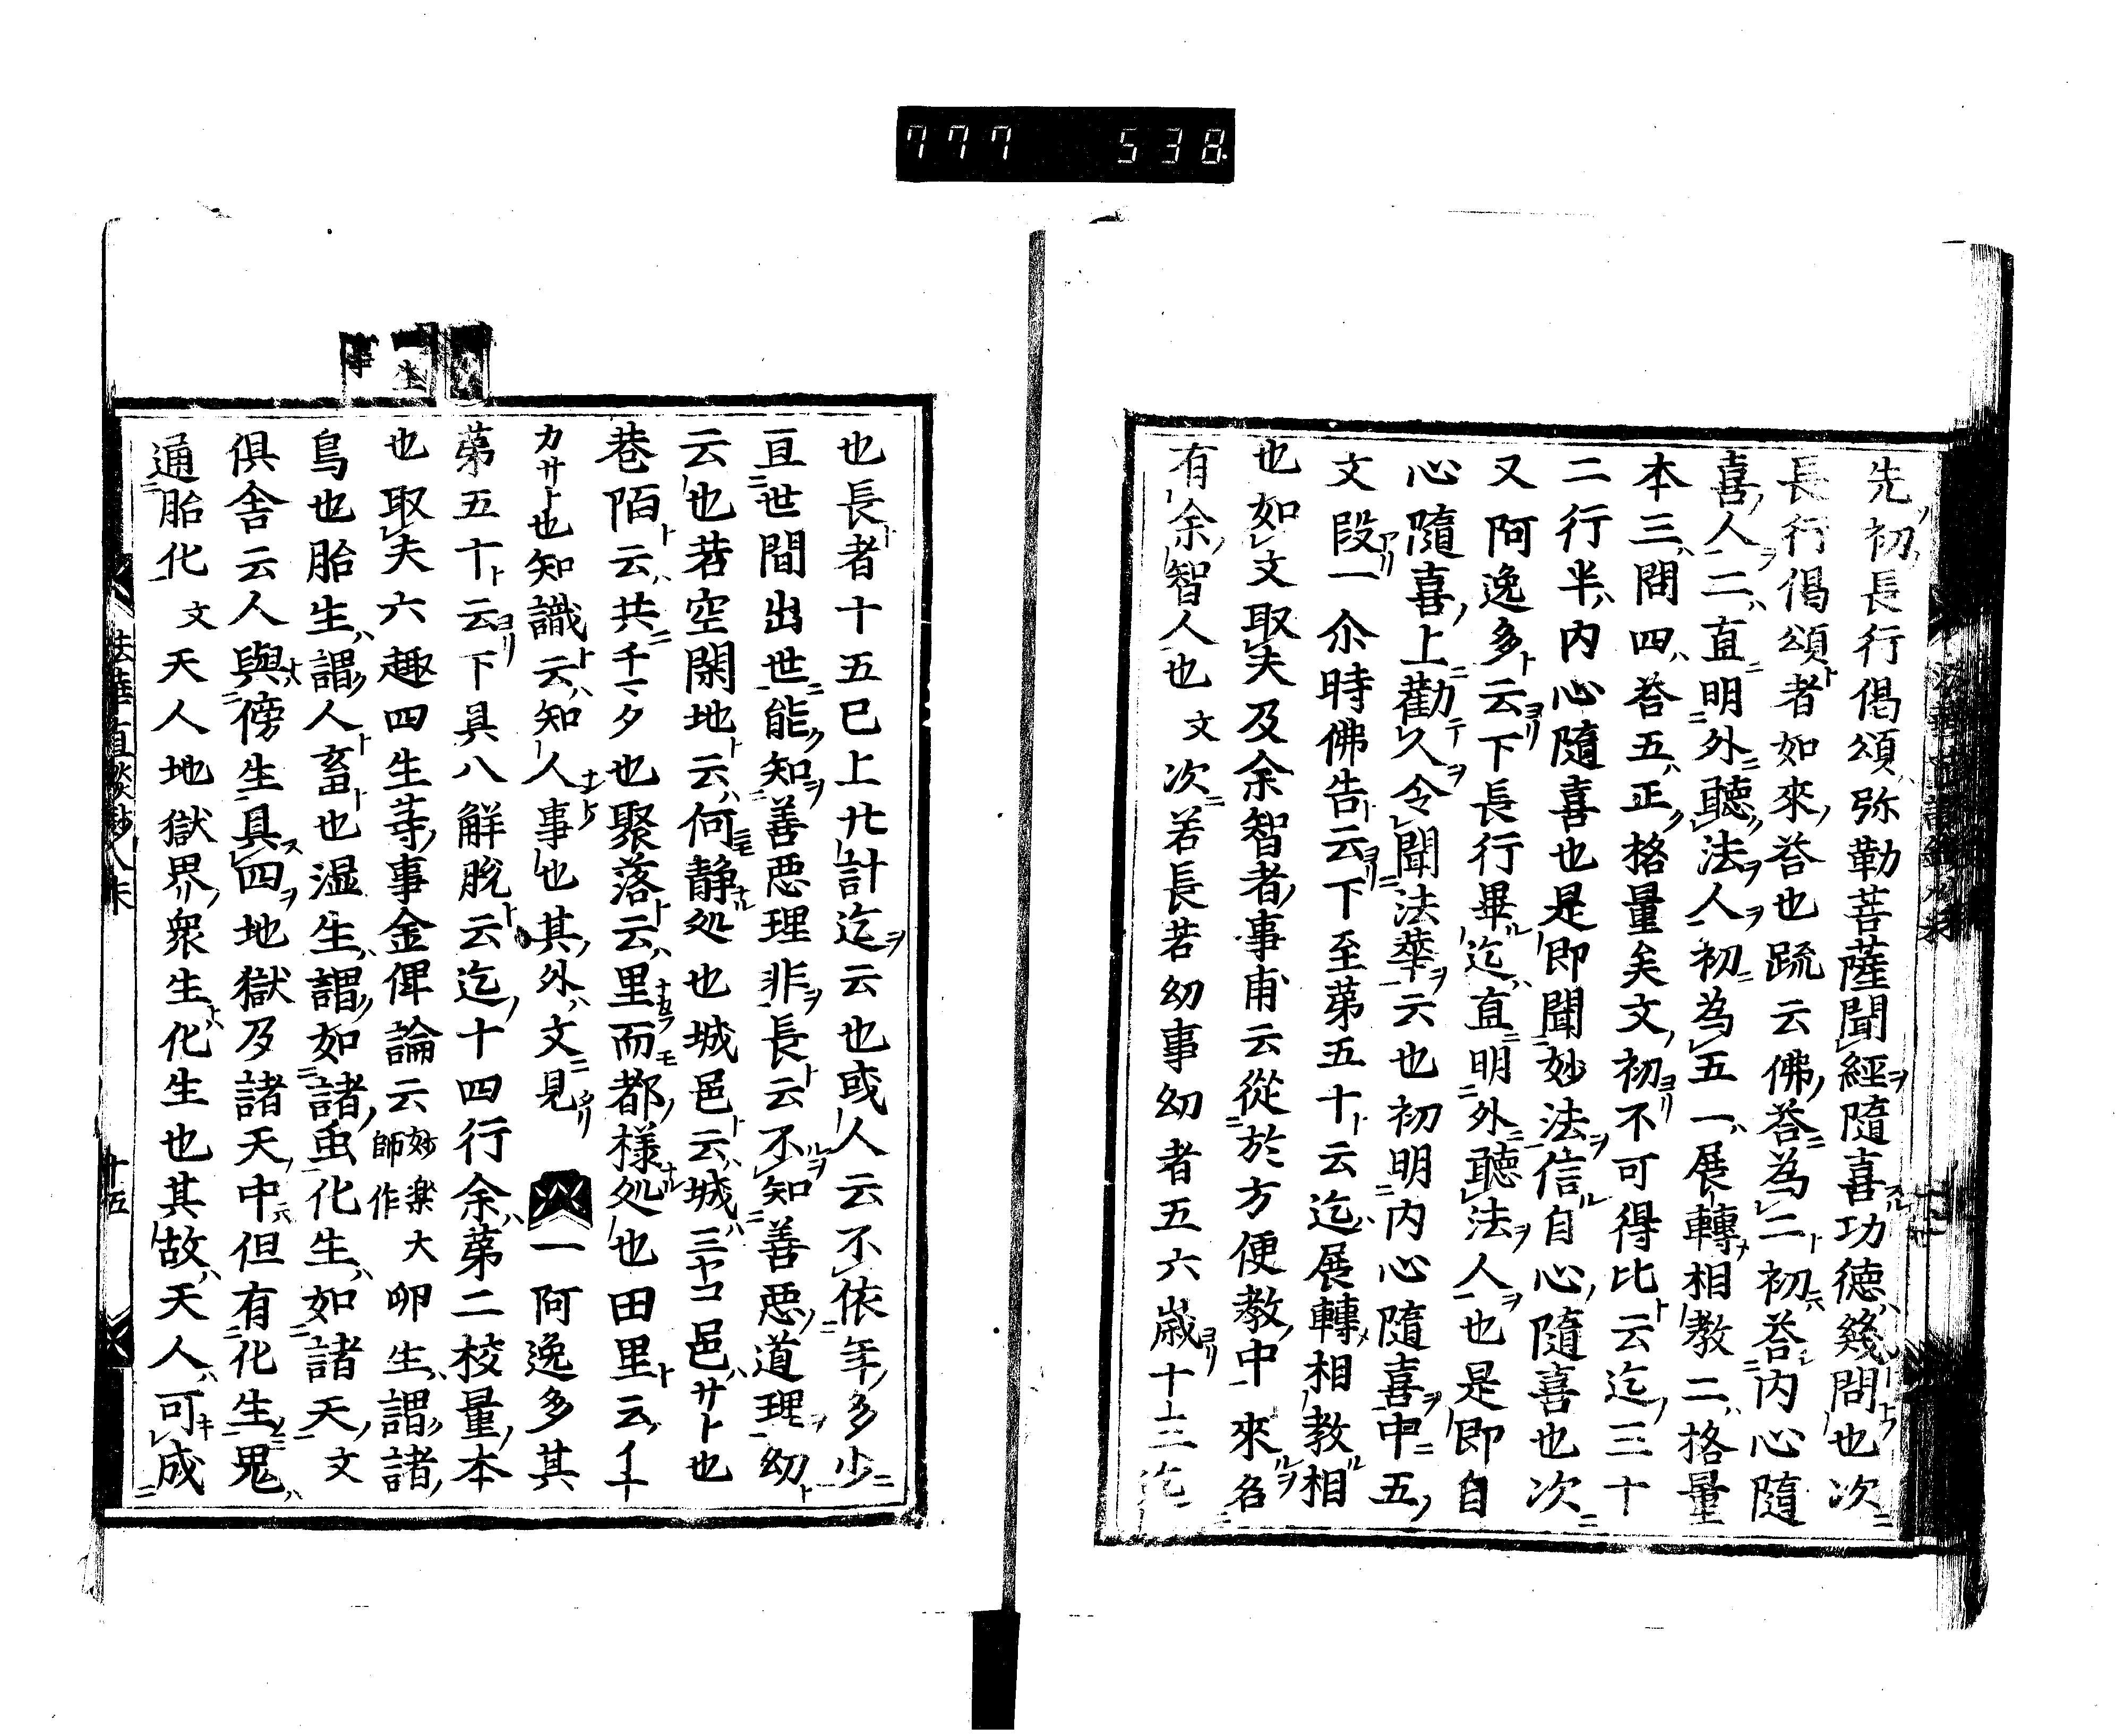 777 538
先初長行偈頌弥勒菩薩聞經隨喜功徳幾問也次
長行偈頌者如來荅也䟽云佛荅為二初荅内心隨
喜人二直明外聽法人初為五一展轉相教二格量
本三問四荅五正格量矣文初不可得比云迄三十
二行半内心隨喜也是即聞妙法信自心隨喜也次
又阿逸多云下長行畢迄直明外聽法人也是即自
心隨喜上勸久令聞法華云也初明内心隨喜中五
文段一尒時佛告云下至苐五十云迄展轉相教相
也如文取夫及余智者事甫云從於方便教中來名
有余智人也文次若長若幼事幼者五六歳十二三迄
也長者十五已上廿計迄云也或人云不依年多少
亘世間出世能知善悪理非長云不知善悪道理幼
云也若空閑地云何静処也城邑云城ミヤコ邑サト也
巷陌云共千マタ也聚落云里而都様処也田里云イナ
カサト也知識云知人事也其外文見 一阿逸多其
苐五十云下具八解脱云迄十四行余苐二校量本
也取夫六趣四生等事金俾論云妙楽大師作卵生謂諸
鳥也胎生謂人畜也湿生謂如諸虫化生如諸天文
俱舎云人與傍生具四地獄及諸天中但有化生鬼
通胎化文天人地獄界衆生化生也其故天人可成
法華直談鈔八末 十五